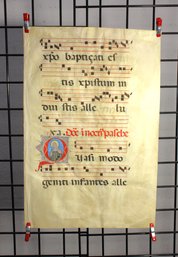 xp̄o baptiçati es
tis xpistum in
dui stis alle lu
ya. Dñi i noct̄ pasche
Quasi modo
geniti infantes alle